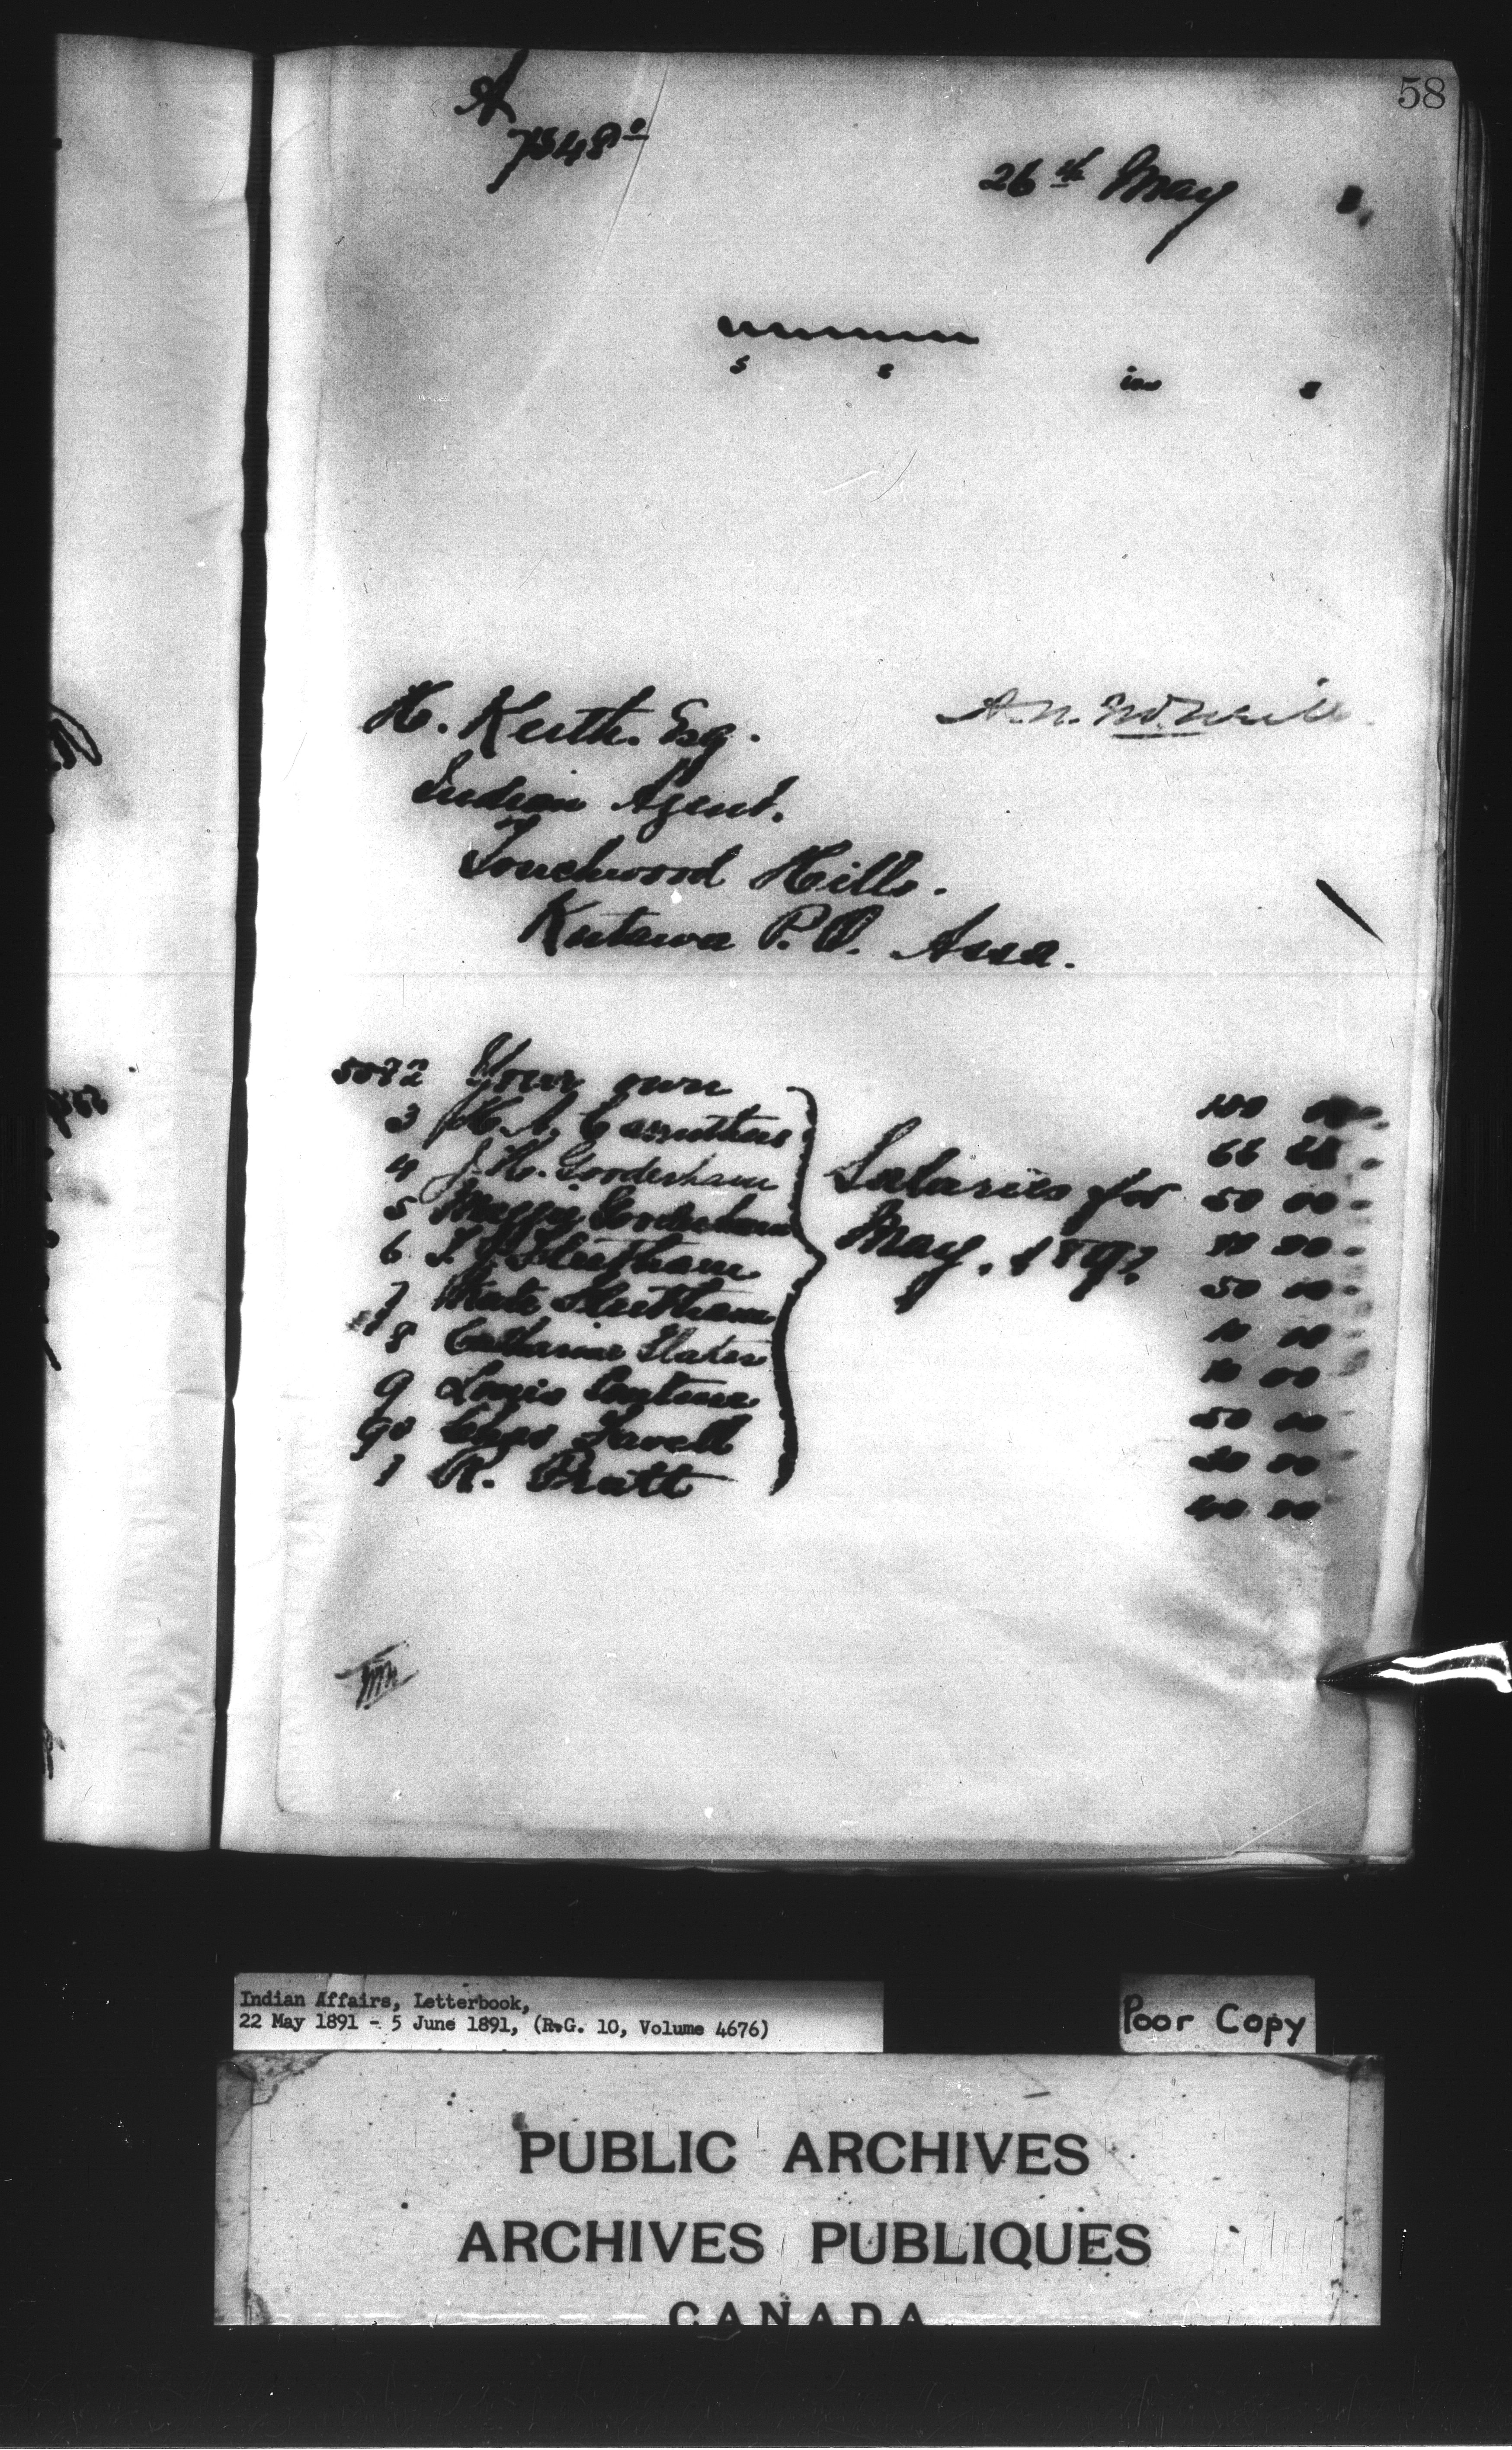 58
A
7348
26th May
s s ion s
H. Keith. Esq.
A. N. McNeill
Indian Agent.
Touchwood Hills.
Kutawa P.O. Assa.
5082 Your own 100 00
3 H. A. Carruthers 66 66
4 J. H. Gooderham Salaries for 50 00
5 Maggie Gooderham May, 1891 10 00
6 Fleetham 50 00
7 Kate Fleetham 10 00
8 Catharine Slater 10 00
9 Louis 50 00
90 Chas Favell 30 00
1 R. Pratt 40 00
Indian Affairs, Letterbook,
22 May 1891 - 5 June 1891, (R.G. 10, Volume 4676)
Poor Copy
PUBLIC ARCHIVES
ARCHIVES PUBLIQUES
CANADA